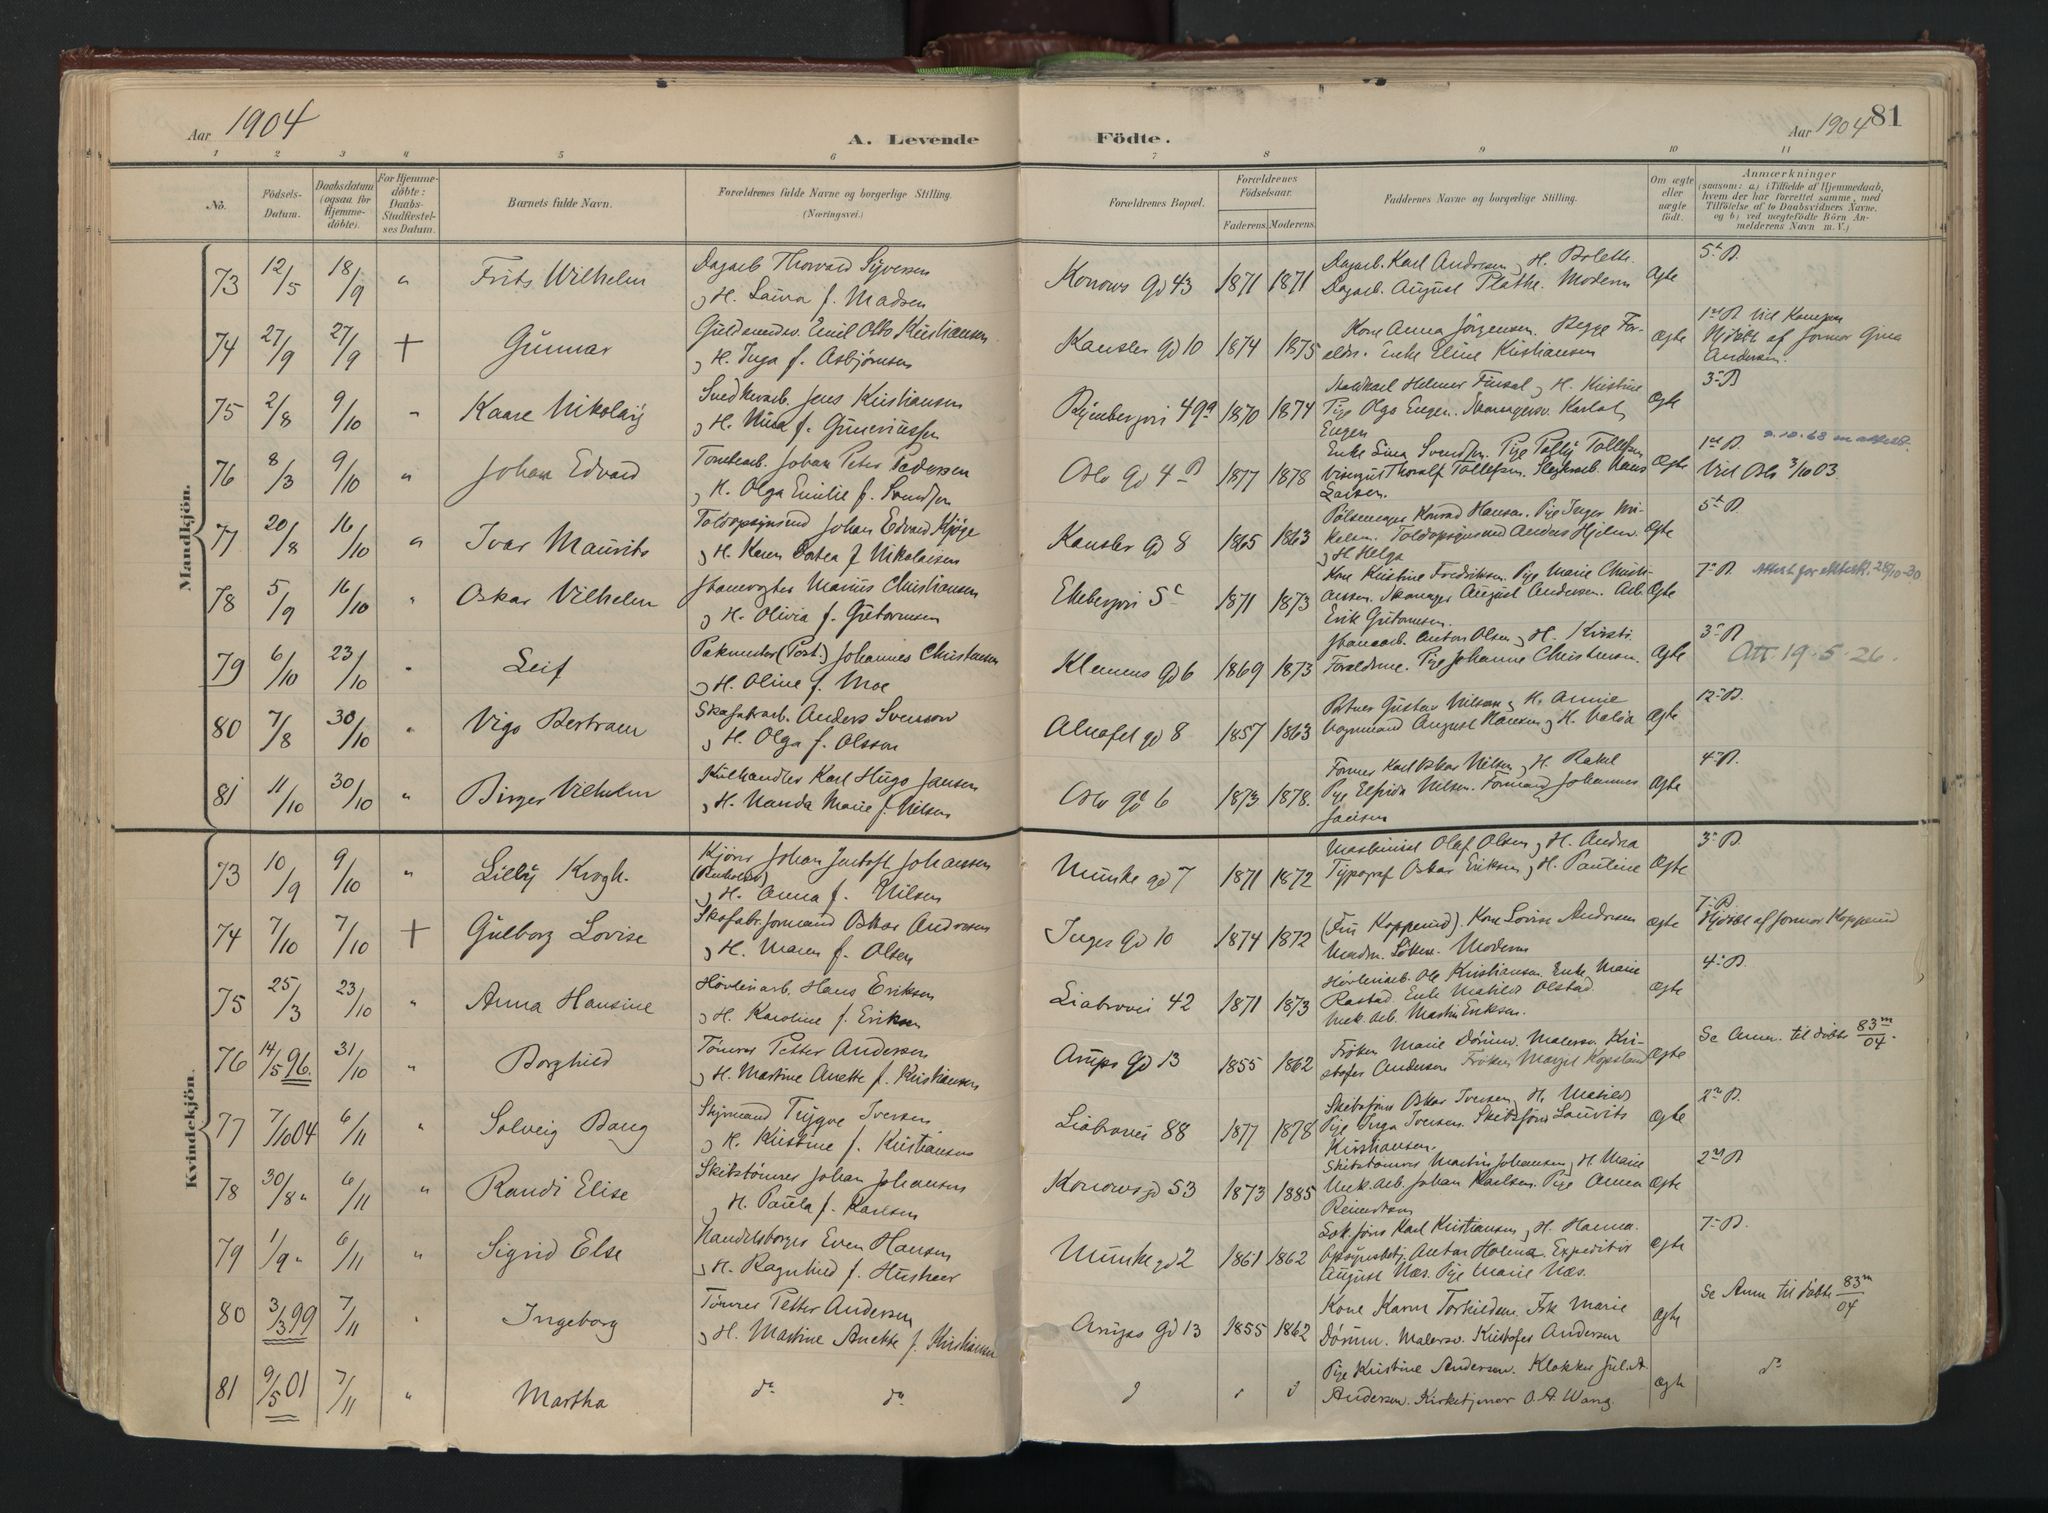 Aar 1904
A. Levende Födte.
Aar 1904
81
1 2 3 4 5 6 7 8 9 10 11
No.
Födsels-Datum.
Daabsdatum (ogsaa for Hjemme-döbte).
For Hjemme-döbte: Daabs-Stadfæstel-ses Datum.
Barnets fulde Navn.
Forældrenes fulde Navne og borgerlige Stilling. (Næringsvei.)
Forældrenes Bopæl.
Forældrenes Födselsaar.
Faderens. Moderens.
Faddernes Navne og borgerlige Stilling.
Om ægte eller uægte födt.
Anmærkninger
(saasom: a) i Tilfælde af Hjemmedaab,
hvem der har forrettet samme, med
Tilföielse af to Daabsvidners Navne.
og b) ved uægtefödte Börn An-
melderens Navn m. V.)
Mandkjön.
73 12/5 18/9 " Frits Wilhelm Dagarb. Thorvald Syversen
og H. Laura f. Madsen
Konows gd 43 1871 1871 Dagarb. Karl Andresen og H. Bolette.
Dagarb. August Plathe. Moderen Ægte 5t B.
74 27/9 27/9 + Gunnar Guldsmedsv. Emil Otto Kristiansen
og H. Inga f. Asbjörnsen
Kansler gd 10 1874 1875 Kone Anna Jörgensen. Begge For-
eldre. Enke Eline Kristiansen Ægte
Hjdöbt af jormor Gina
Andersen.
75 2/8 9/10 " Kaare Nikolay Snedkerarb. Jens Kristiansen
og H. Nina f. Guneriussen
49a 1870 1874 og H. Kristine
Pige Olga Engen.
Engen Ægte 3. B
76 8/3 9/10 " Johan Edvard Johan Peter Pedersen
og H. Olga Emilie f. Svendsen
Oslo gd 4 B 1877 1878 Enke Lina Svendsen. Pige Tolly Tollefsen
Thoralf Tollefsen. Hans
Larsen. Ægte 1st B.
Vied Oslo 3/10 03.
77 20/8 16/10 " Ivar Mauritz Toldopsynsmd Johan Edvard Kjöge
og H. Karen Dortea f. Nikolaisen
Kansler gd 8 1865 1863 Pölsemager Konrad Hansen. Pige Inger Mi-
kelsen. Toldopsynsmd Anders Hjelm
og H. Helga Ægte 5t B.
78 5/9 16/10 " Oskar Vilhelm Banevogter Marius Christiansen
og H. Olivia f. Gutormsen
Ekebergvei 5c 1871 1873 Kone Kristine Fredriksen. Pige Marie Christi-
ansen. Skomager August Andersen. Arb.
Erik Gutormsen. Ægte 7. B. 28/10-30
79 6/10 23/10 " Leif Pakmester (Post.) Johannes Christiansen
og H. Oline f. Moe
Klemens gd 6 1869 1873 Banearb. Anton Olsen og H. Kirsti.
Foreldrene. Pige Johanne Christensen. Ægte 3. B
Att. 19-5-26.
80 7/8 30/10 " Vigo Bertram Skofabarb. Anders Svenson
og H. Olga f. Olsson
Alnafet gd 8 1857 1863 Gustav Nilsen og H. Annie
Vognmand August Hansen og H. Valda Ægte 12. B.
81 11/10 30/10 " Birger Vilhelm Kulhandler Karl Hugo Jansen
og H. Nanda Marie f. Nilsen
Oslo gd 6 1873 1878. Former Karl Oskar Nilsen og H. Rakel
Pige Elfrida Nilsen. Formand Johannes
Jansen Ægte 4. B.
Kvindekjön.
73 10/9 9/10 " Lilly Krogh. Johan Jentoft Johanssen
og H. Anna f. Nilsen
Munke gd 7 1871 1872 Maskinist Olaf Olsen og H. Andrea
Typograf Oskar Eriksen og H. Pauline Ægte 3. B.
74 7/10 7/10 + Gulborg Lovise Skofabr. formand Oskar Andresen
og H. Maren f. Olsen
Inges gd 10 1874 1872 (Fru Koppernd). Kone Lovise Andresen
Moderen Ægte 7. B.
Hjdöbt af jormor Koppernd
75 25/3 23/10 " Anna Hansine Hövleriarb. Hans Eriksen
og H. Karoline f. Eriksen
Liabrovei 42 1871 1873 Hövleriarb. Ole Kristiansen. Enke Marie
Rastad. Enke Matilde Olstad.
Mek. Arb. Martin Eriksen. Ægte 4. B.
76 14/5 96. 31/10 " Borghild Tömrer Petter Andersen
og H. Martine Anette f. Kristiansen
Arups gd 13 1855 1862 Fröken Marie Dörum. Malersv. Kri-
stofer Andersen Fröken Margit Kopsland Ægte Se Anm. til döbte 83m/04.
77 7/10 04 6/11 " Solveig Bang Styrmand Trygve Iversen
og H. Kristine f. Kristiansen
Liabrovei 88 1877 1878 Skibsförer Oskar Iversen og H. Matilde
Pige Inga Iversen. Skibsförer Lauritz
Kristiansen. Ægte 2n B.
78 30/8 " 6/11 " Randi Elise Skibstömrer Johan Johansen
og H. Paula f. Karlsen
Konows gd 53 1873 1885 Skibstömrer Martin Johansen og H. Marie
Mek. Arb. Johan Karlsen. Pige Anna
Ægte 2n B
79 1/9 " 6/11 " Sigrid Else Handelsborger Even Hansen
og H. Ragnhild f. Husheer
Munke gd 2 1861 1862 Lok. förer Karl Kristiansen og H. Hanna.
Opsynsbetj. Anton Holena. Expeditör
August Næs. Pige Marie Næs. Ægte 7. B.
80 3/3 99 7/11 " Ingeborg Tömrer Petter Andersen
og H. Martine Anette f. Kristiansen
Arups gd 13 1855 1862 Kone Karen Torkildsen. Frk Marie
Dörum. Malersv. Kristofer Andersen Ægte Se Anm til döbte 83m/04
81 9/5 01 7/11 " Martha do do
Pige Kristine Andersen. Klokker Jul. A.
Andersen. Kirketjener O. A. Wang. Ægte do